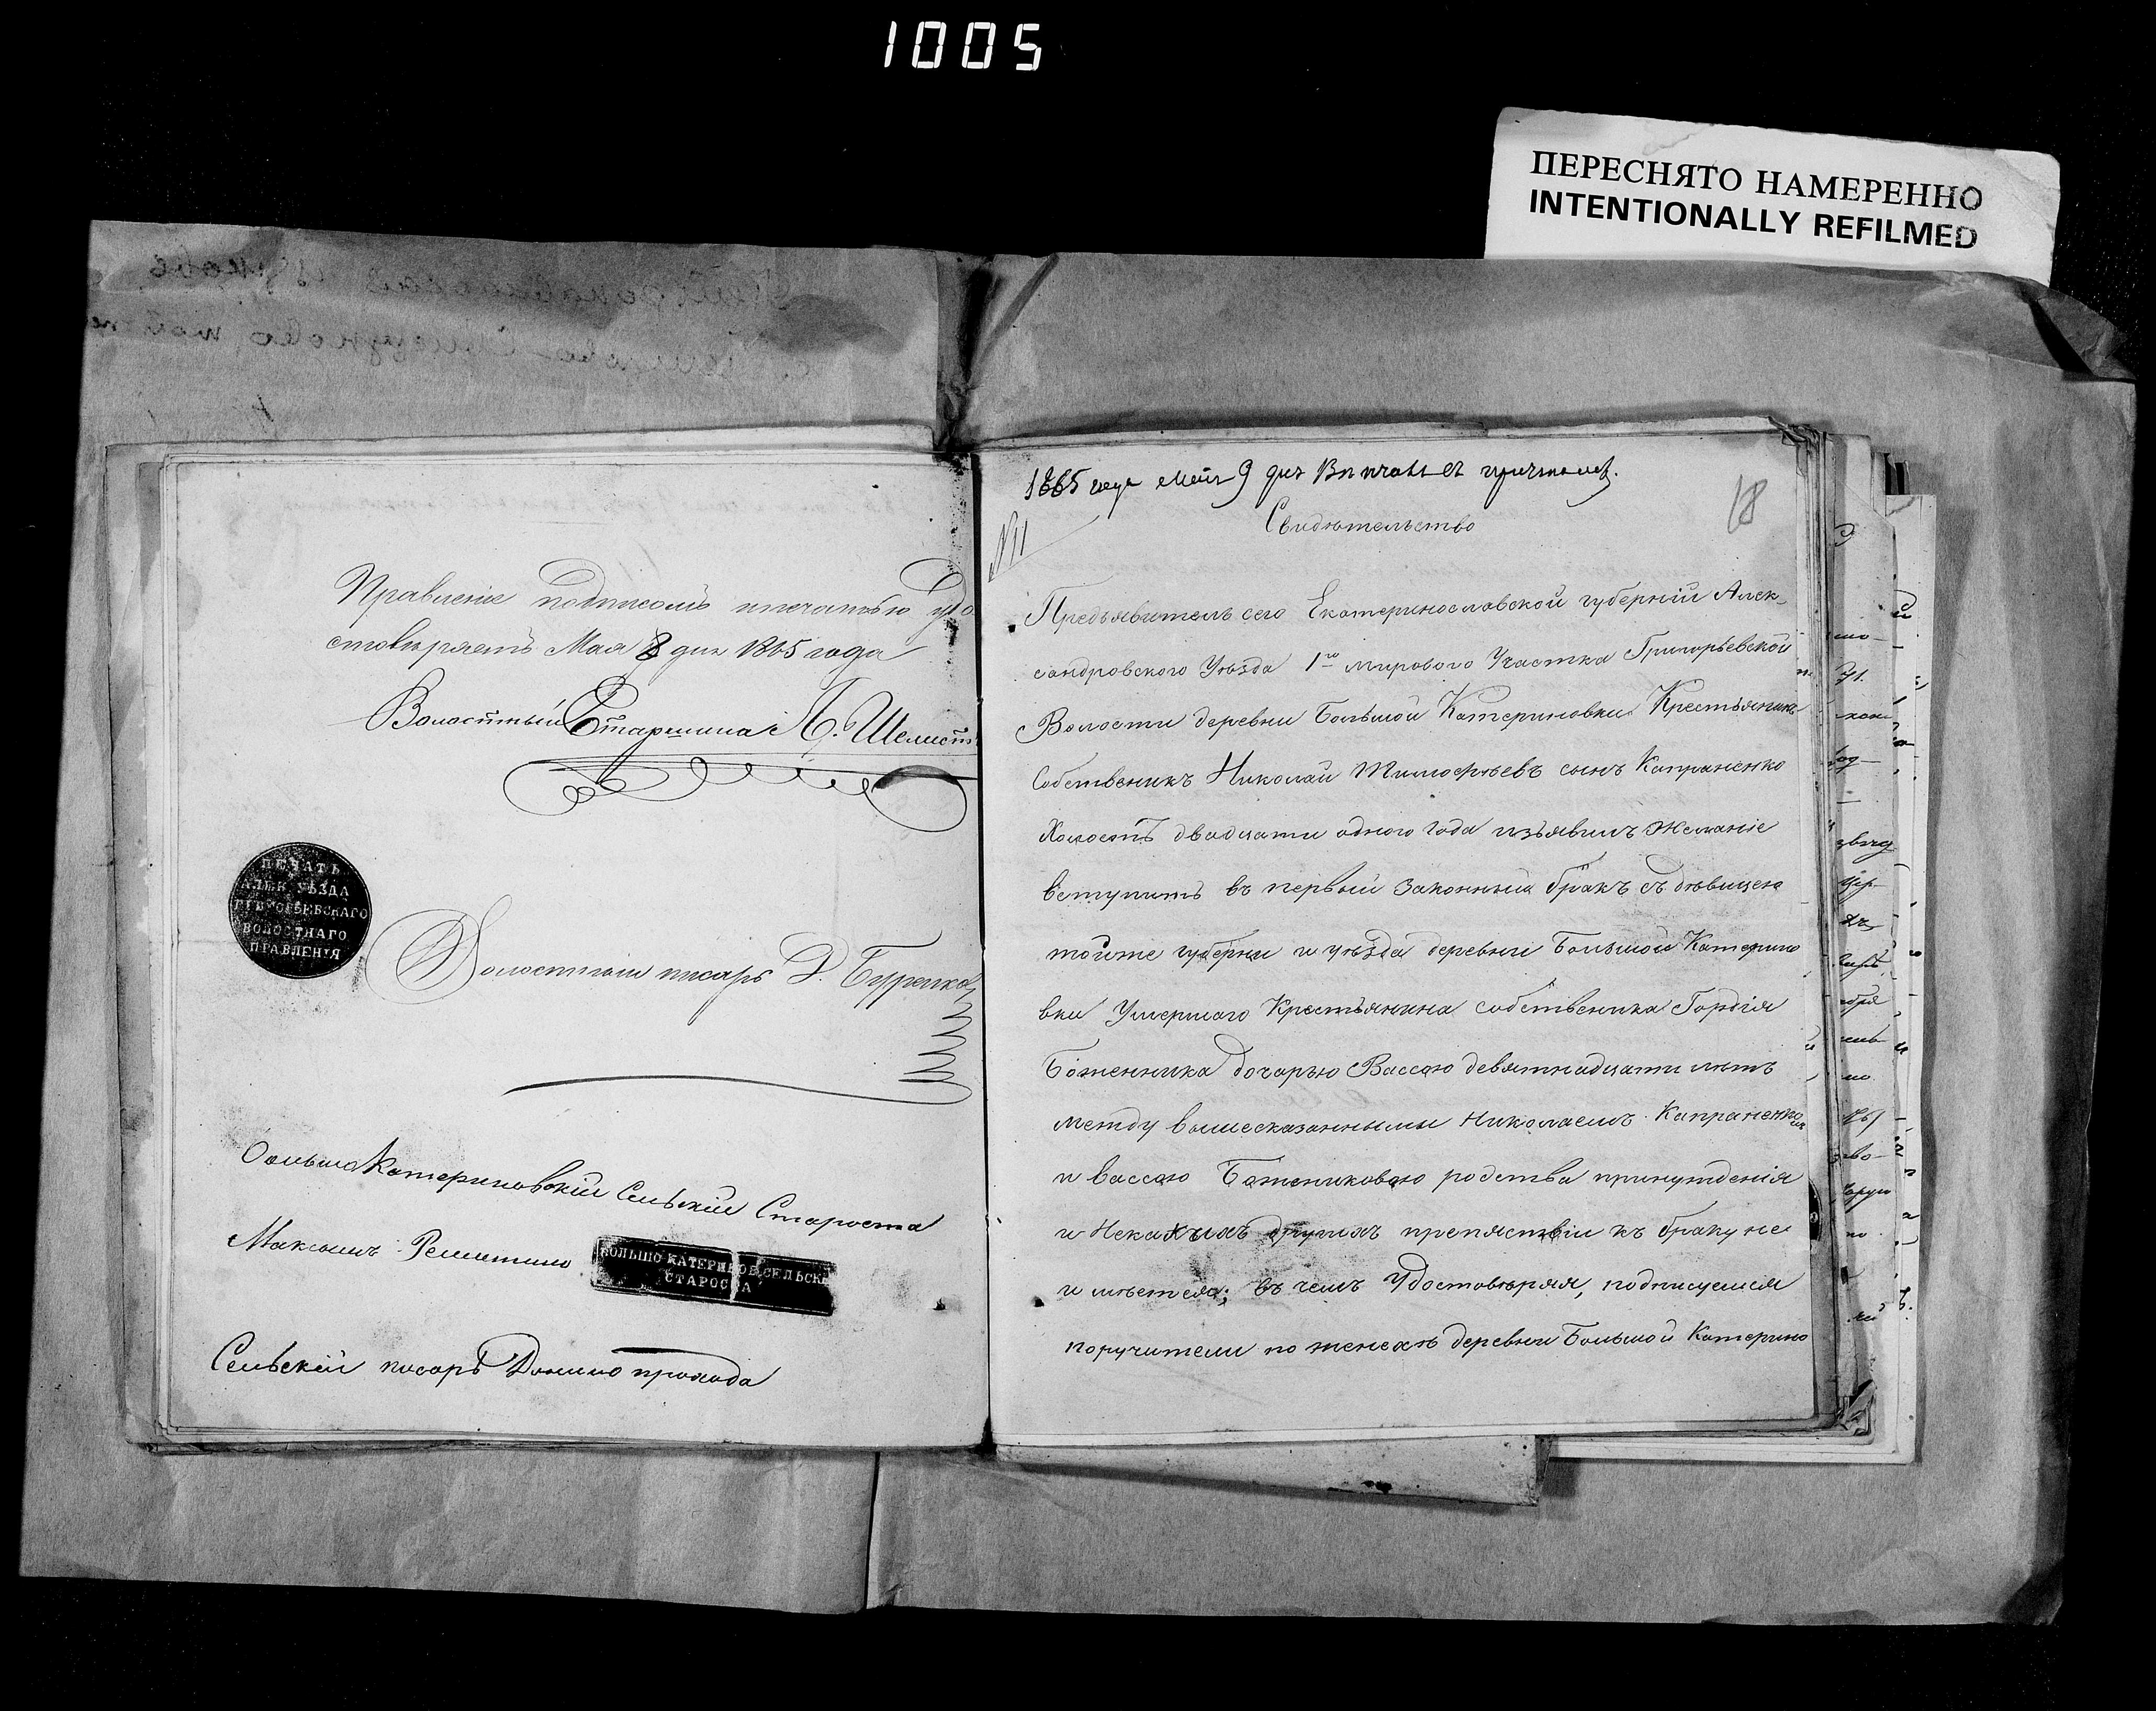 1005
ПЕРЕСНЯТО НАМЕРЕННО
INTENTIONALLY REFILMED
Правленіе подписомъ ипечатью удо
стовѣряетъ Мая 8 дня 1865 года
Волостный Старшина Л. Шелист
ПЕЧАТЬ
АЛЕК УѢЗДА
ГРИГОРЬЕВСКАГО
ВОЛОСТНАГО
ПРАВЛЕНІЯ
Волостный писарь
Больше Катериновскій Сельскій Староста
Максимъ
БОЛЬШО КАТЕРИНОВ СЕЛЬСКІ
СТАРОСТА
Сельскій писарь Данило
1865 года Мая 9 дня
18
Свидѣтельство
№ 11
Предъявитель сего Екатеринославской губерніи Алек-
сандровского Уѣзда 1го мирового Участка Григорьевской
Волости деревни Большой Катериновки Крестьянинъ
Собственикъ Николай Тимофѣевъ сынъ Капраненко
Холостъ двадцати одного года изъявилъ желаніе
вступить въ первый законный бракъ съ дѣвицею
тойже губерни и уѣзда деревни Большой Катерино
вки Умершаго Крестьянина собственика Гордія
Боженника дочерью Вассою девятнадцати лѣтъ
между вышесказанными Николаемъ Капраненко
и Вассою Бажениковою родства принужденія
и Некакихъ другихъ препяствіи къ браку не
имѣется; въ чемъ Удостовѣряя, подписуемся
поручители по женехѣ деревни Большой Катерино